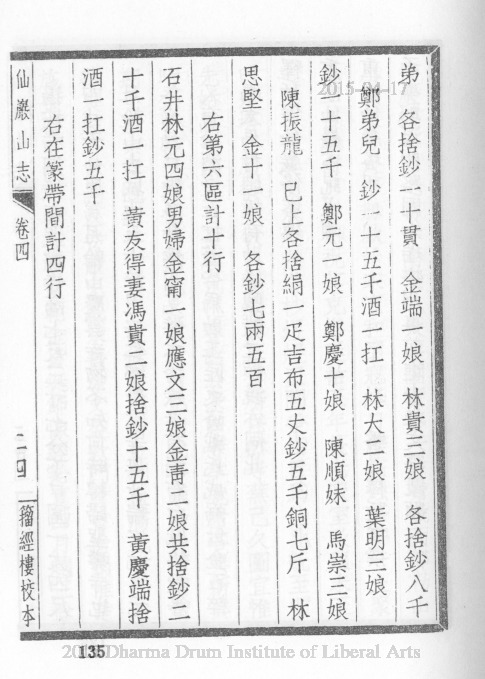 弟　各捨鈔一十貫　金端一娘　林貴三娘　各捨鈔八千
鄭弟兒　鈔一十五千酒一扛　林大二娘　葉明三娘
鈔一十五千　鄭元一娘　鄭慶十娘　陳順妹　馬崇三娘
陳振龍　巳上各捨絹一疋吉布五丈鈔五千銅七斤　林
思堅　金十一娘　各鈔七兩五百
右第六區計十行
石井林元四娘男婦金甯一娘應文三娘金靑二娘共捨鈔二
十千酒一扛　黃友得妻馮貴二娘捨鈔十五千　黃慶端捨
酒一扛鈔五千
右在篆帶間計四行
仙巖山志　卷四　二四　籀經樓校本
135
2015-04-17
Dharma Drum Institute of Liberal Arts